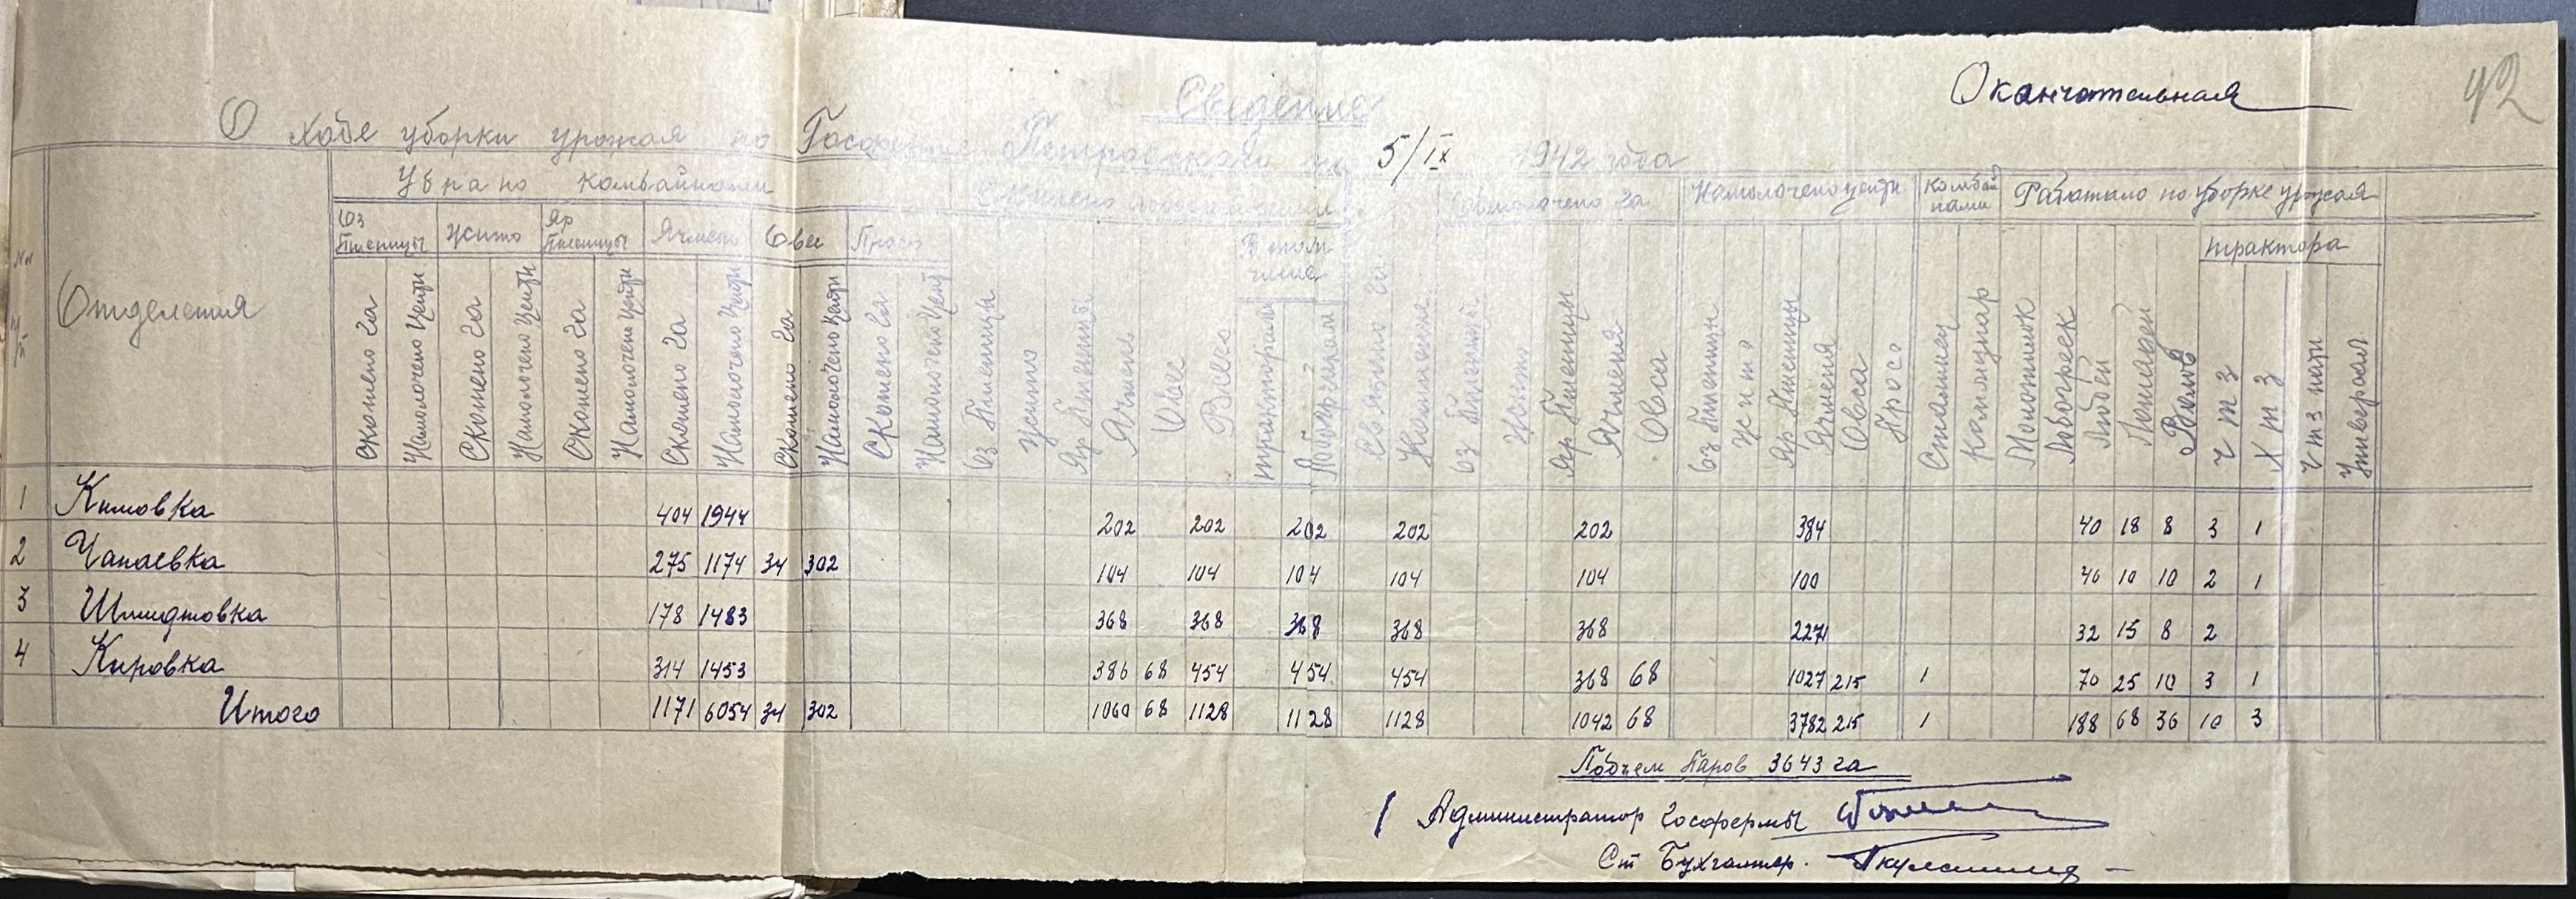 Сведение
Окончательная
42
О ходе уборки урожая по Госферме Петровского на 5/IX 1942 года
№№ п/п
Отделения
Убрано комбайнами
Скошено лобогрейками
Обмолочено га
Намолочено центн
Комбайнами
Работало по уборке урожая
Оз Пшеницы Жито Яр Пшеницы Ячмень Овес Просо
В том числе
трактора
Скошено га Намолочено Центн Скошено га Намолочено Центн Скошено га Намолочено Центн Скошено га Намолочено Центн Скошено га Намолочено Центн Скошено га Намолочено Центн
Оз Пшеницы Жито Яр Пшеницы Ячмень Овес Всего тракторами Лобогрейкам
Связано га
Оз Пшениц Жито Яр Пшеницы Ячменя Овса
Оз Пшеницы Жито Яр Пшеницы Ячменя Овса Просо
Сталинец Коммунар Молотилок Лобогреек Людей Лошадей Волов ЧТЗ ХТЗ ЧТЗ нати Универсал
1 Кимовка 404 1944 202 202 202 202 202 384 40 18 8 3 1
2 Чапаевка 275 1174 34 302 104 104 104 104 104 100 46 10 10 2 1
3 Шмидтовка 178 1483 368 368 368 368 368 2271 32 15 8 2
4 Кировка 314 1453 386 68 454 454 454 368 68 1027 215 1 70 25 10 3 1
Итого 1171 6054 34 302 1060 68 1128 1128 1128 1042 68 3782 215 1 188 68 36 10 3
Подъем Паров 3643 га
Администратор Госфермы
Ст Бухгалтер.